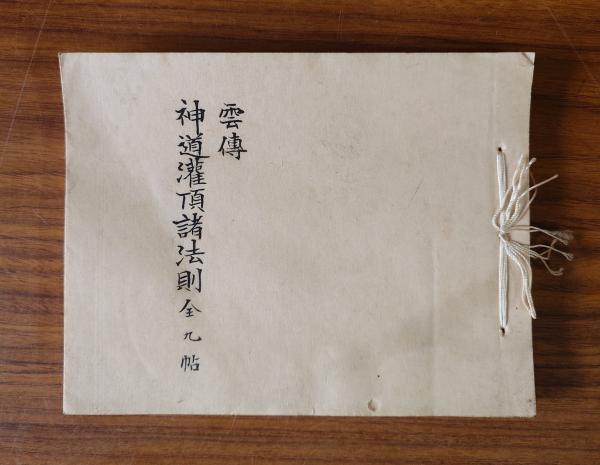 雲傳
神道灌頂諸法則全九帖